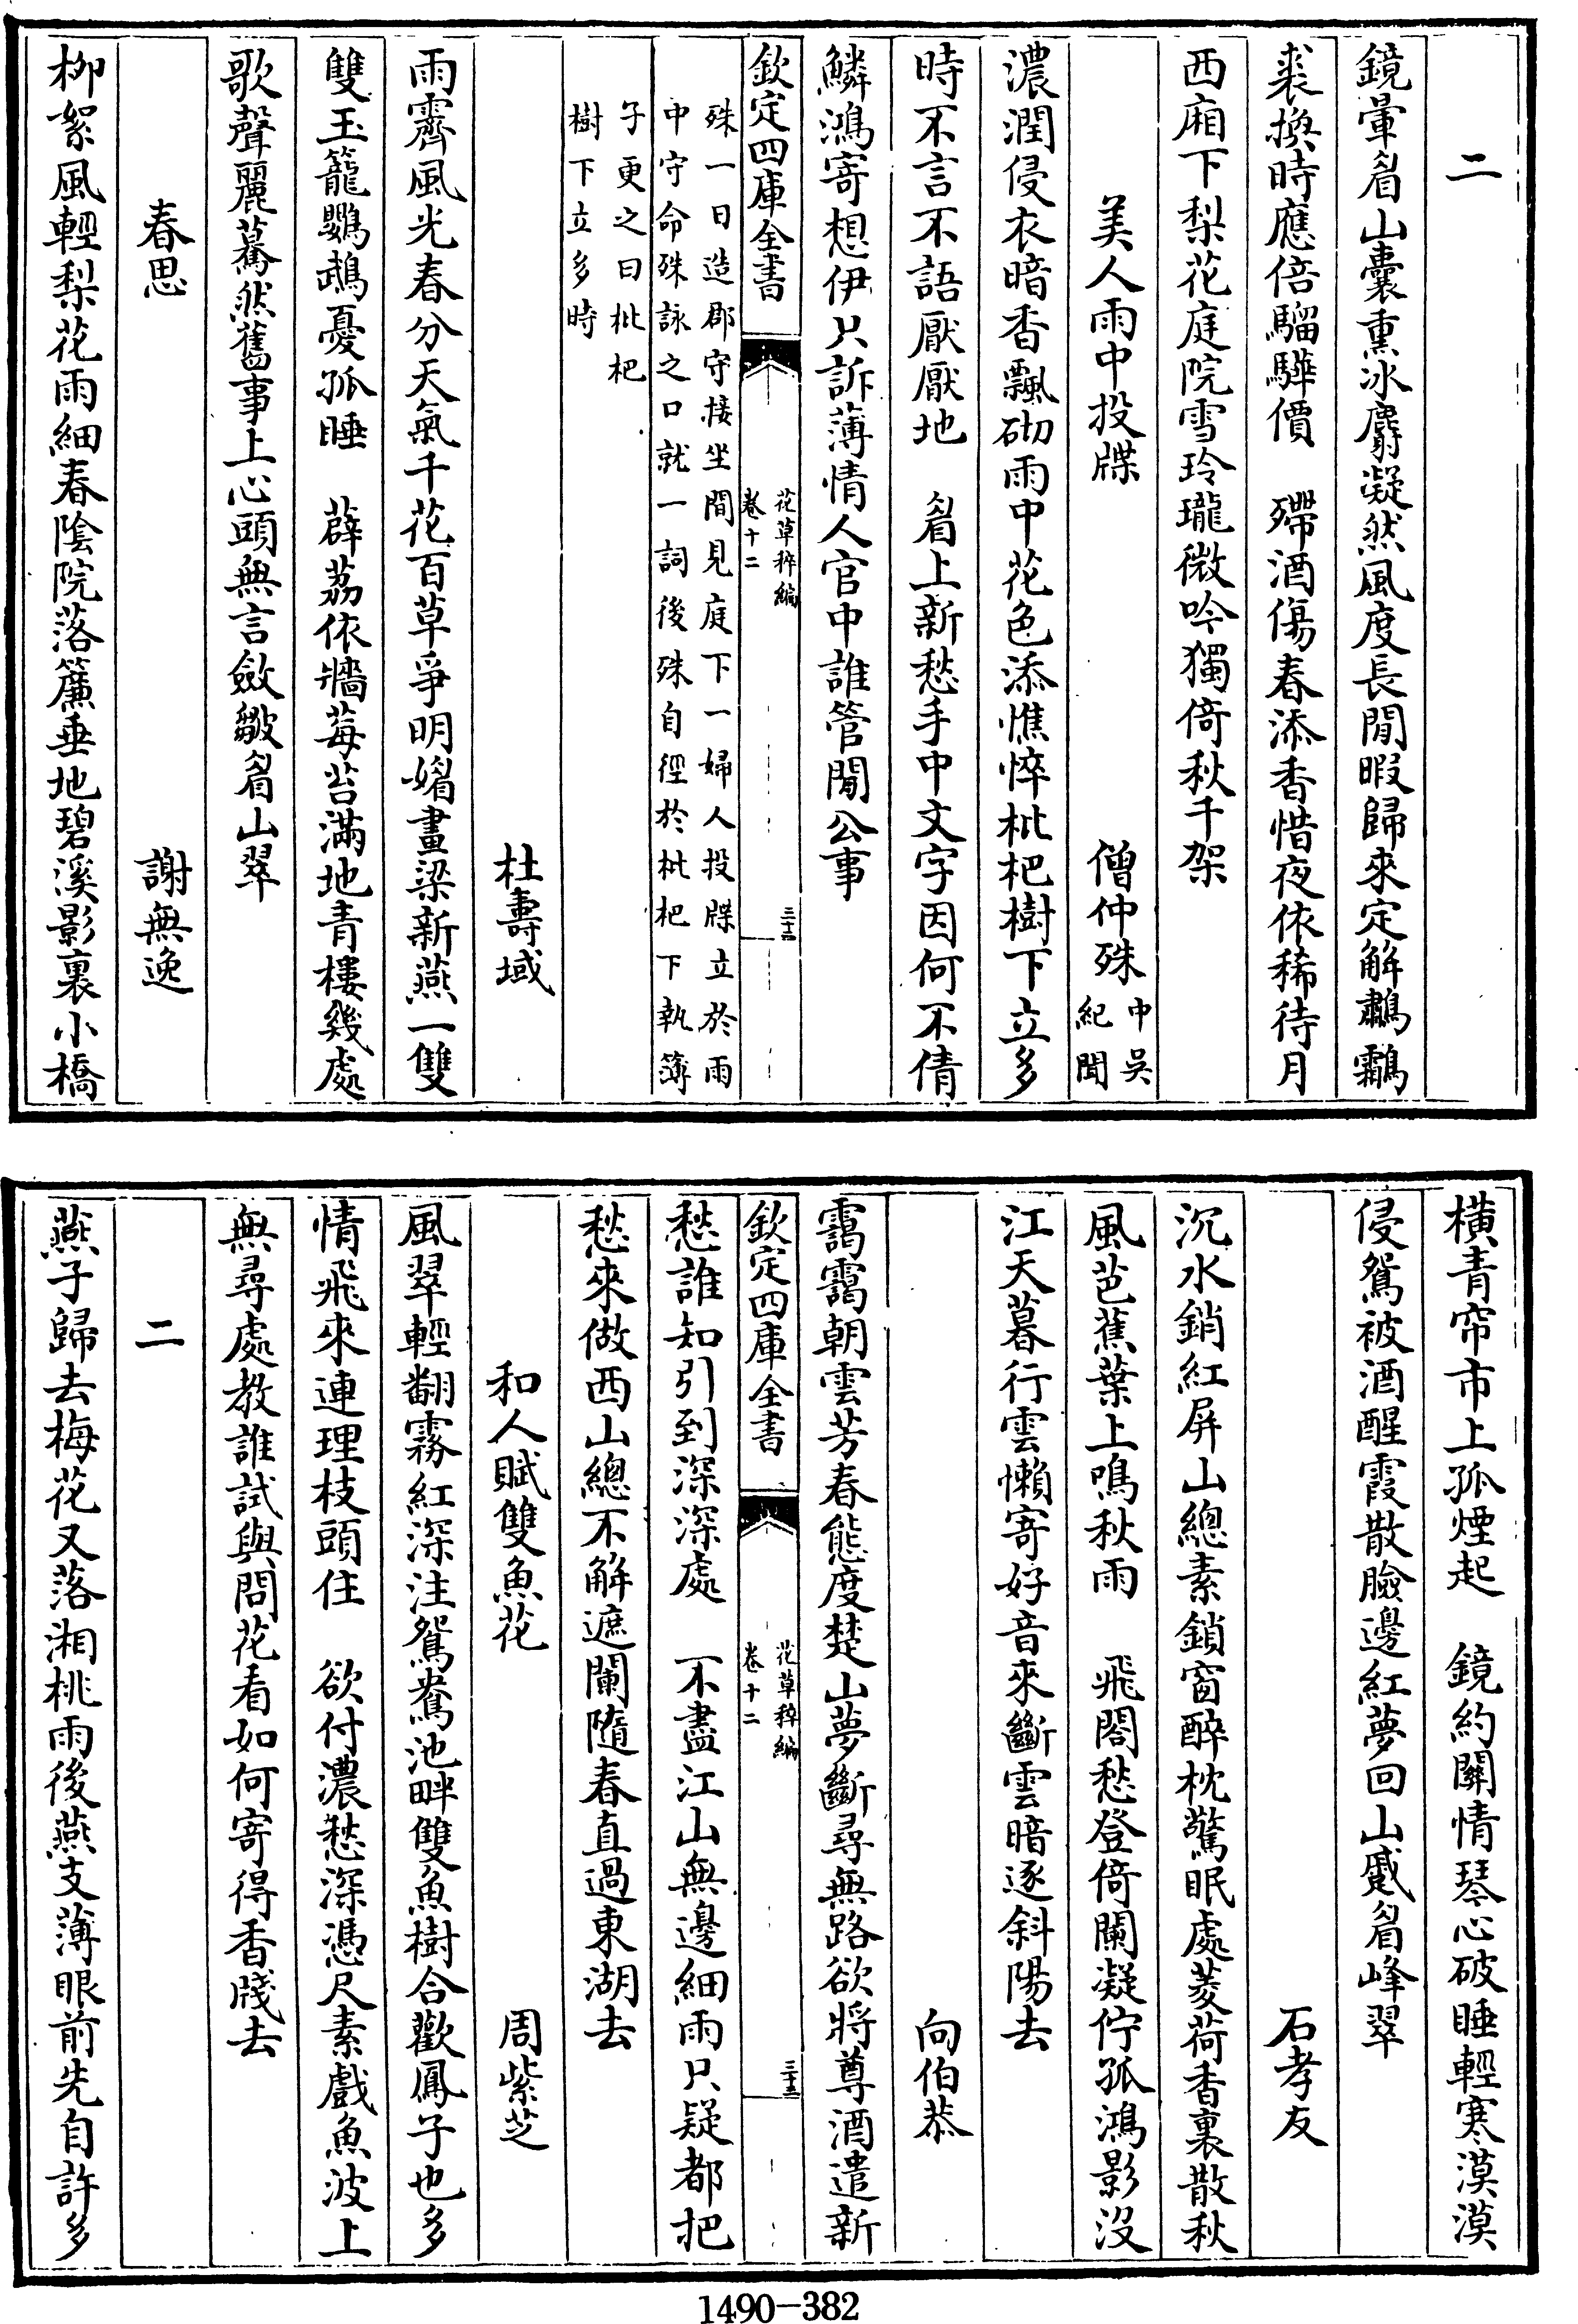 二
鏡暈眉山囊熏冰麝凝然風度長閒暇歸來定解鷫鸘
裘換時應倍騮驊價　殢酒傷春添香惜夜依稀待月
西廂下梨花庭院雪玲瓏微吟獨倚秋千架
美人雨中投牒　僧仲殊　中吳紀聞
濃潤侵衣暗香飄砌雨中花色添憔悴枇杷樹下立多
時不言不語厭厭地　眉上新愁手中文字因何不倩
鱗鴻寄想伊只訴薄情人官中誰管閒公事
欽定四庫全書　花草稡編　卷十二　三十三
殊一日造郡守接坐間見庭下一婦人投牒立於雨
中守命殊詠之口就一詞後殊自徑於枇杷下執簿
子更之曰枇杷
樹下立多時
杜壽域
雨霽風光春分天氣千花百草爭明媚畫梁新燕一雙
雙玉籠鸚鵡憂孤睡　薜荔依牆莓苔滿地青樓幾處
歌聲麗驀然舊事上心頭無言斂皺眉山翠
春思　謝無逸
柳絮風輕梨花雨細春陰院落簾垂地碧溪影裏小橋
橫青帘市上孤煙起　鏡約關情琴心破睡輕寒漠漠
侵鴛被酒醒霞散臉邊紅夢回山蹙眉峰翠
石孝友
沉水銷紅屏山總素鎖窗醉枕驚眠處菱荷香裏散秋
風芭蕉葉上鳴秋雨　飛閣愁登倚闌凝佇孤鴻影沒
江天暮行雲懶寄好音來斷雲暗逐斜陽去
向伯恭
靄靄朝雲芳春態度楚山夢斷尋無路欲將尊酒遣新
欽定四庫全書　花草稡編　卷十二　三十三
愁誰知引到深深處　不盡江山無邊細雨只疑都把
愁來做西山總不解遮闌隨春直過東湖去
和人賦雙魚花　周紫芝
風翠輕翻霧紅深注鴛鴦池畔雙魚樹合歡鳳子也多
情飛來連理枝頭住　欲付濃愁深憑尺素戲魚波上
無尋處教誰試與問花看如何寄得香牋去
二
燕子歸去梅花又落湘桃雨後燕支薄眼前先自許多
1490-382